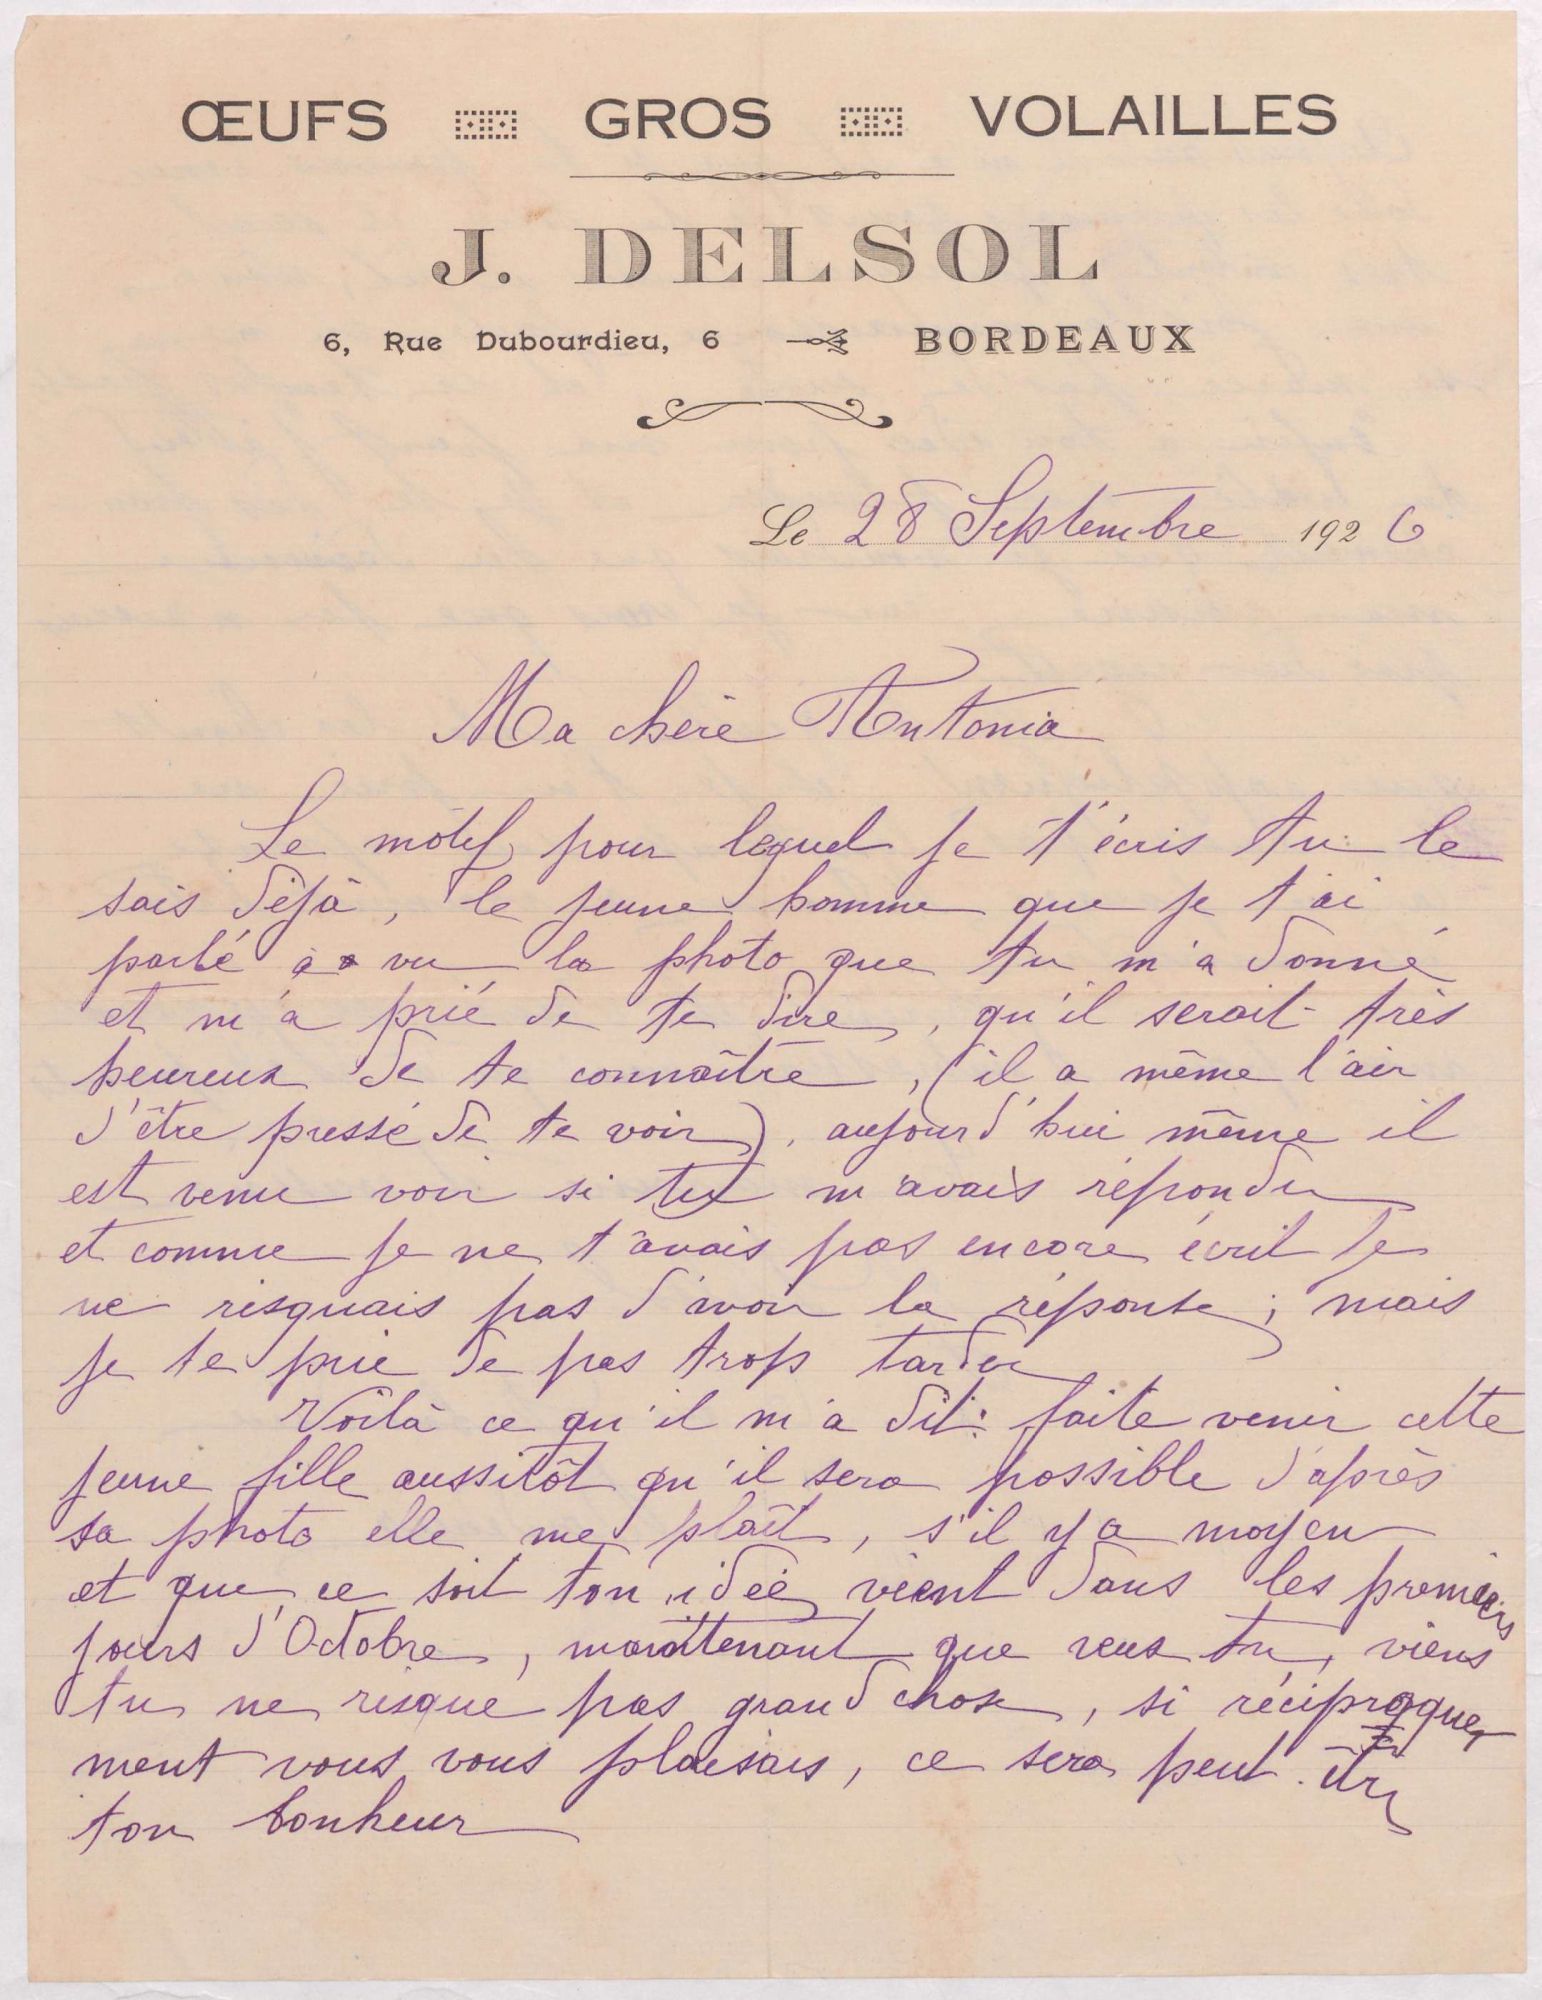 ŒUFS GROS VOLAILLES
J. DELSOL
6, Rue Dubourdieu, 6 BORDEAUX
Le 28 Septembre 1926
Ma chère Antonia
Le motif pour lequel je t'écris tu le
sais déjà, le jeune homme que je t'ai
parlé a vu la photo que tu m'a donné
et m'a prié de te dire, qu'il serait très
heureux de te connaître, (il a même l'air
d'être pressé de te voir), aujourd'hui même il
est venu voir si tu m'avais répondu
et comme je ne t'avais pas encore écrit je
ne risquais pas d'avoir la réponse; mais
je te prie de pas trop tarder
Voilà ce qu'il m'a dit: faite venir cette
jeune fille aussitôt qu'il sera possible d'après
sa photo elle me plaît, s'il y a moyen
et que ce soit ton idée vient dans les premiers
jours d'Octobre, maintenant que veus tu, viens
tu ne risque pas grand chose, si réciproque
ment vous vous plaisais, ce sera peut-être
ton bonheur